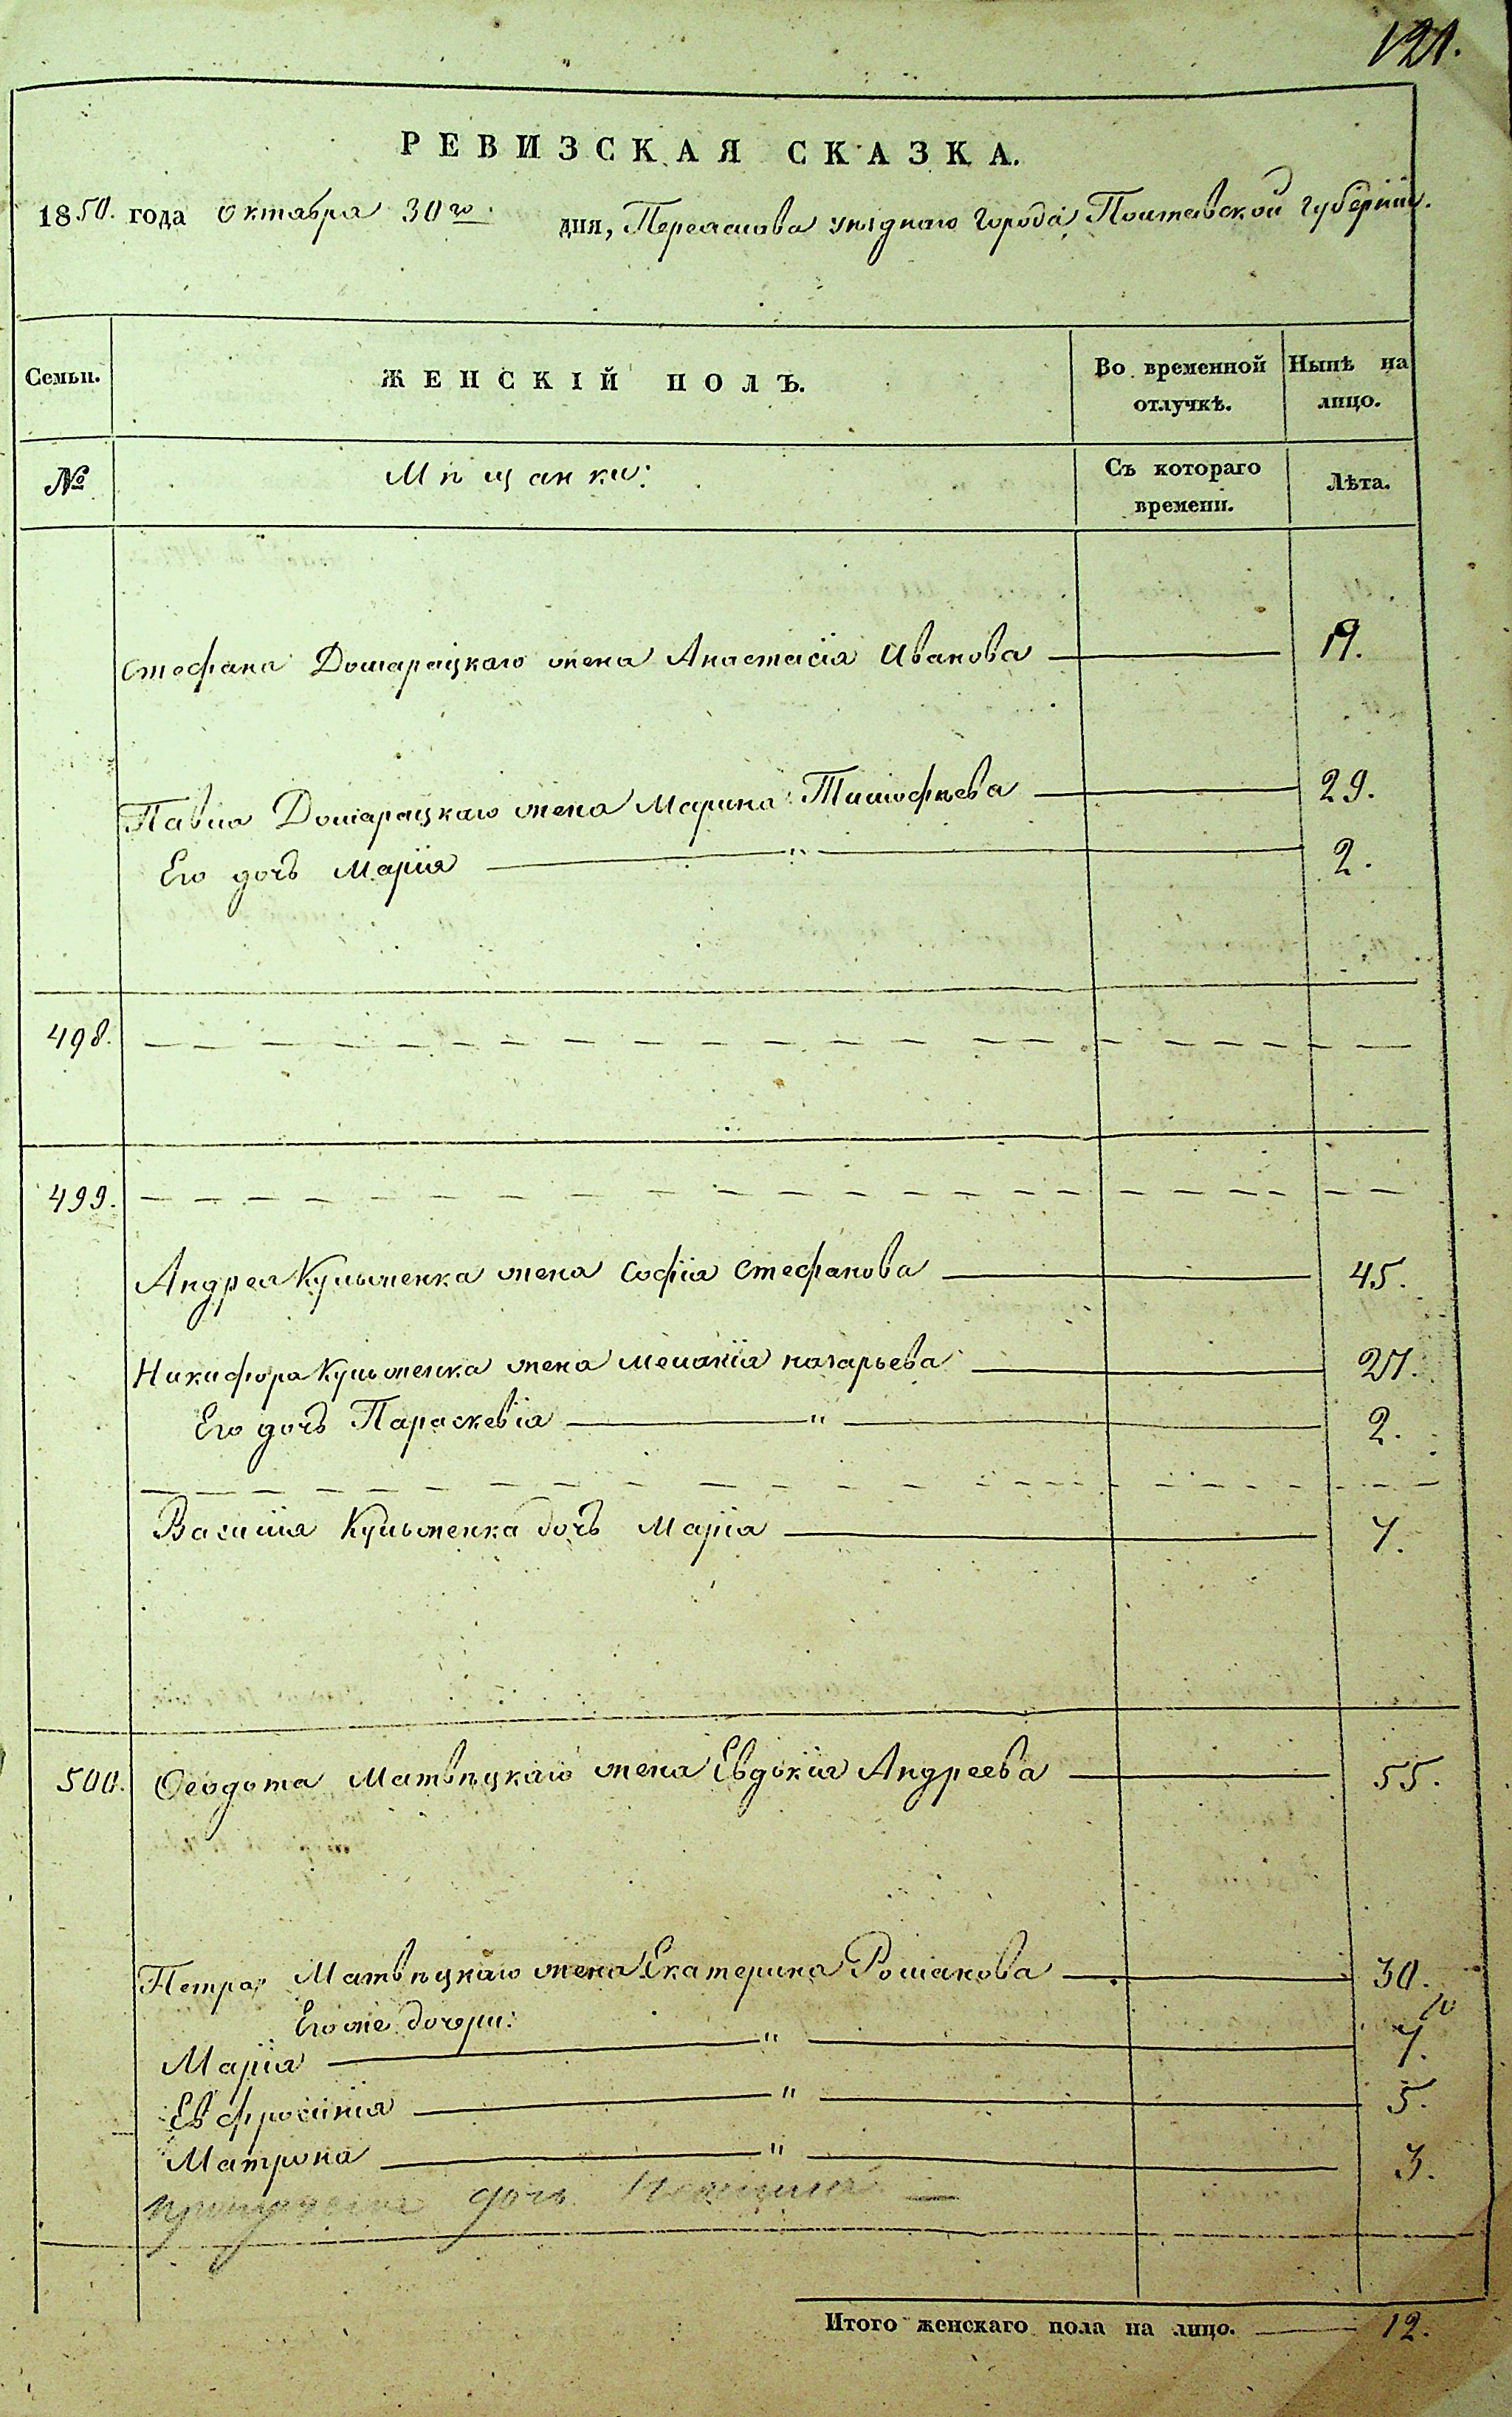 121.
РЕВИЗСКАЯ СКАЗКА.
1850. года Октября 30го дня, Переяслова уѣзднаго города, Полтавской губерніи.
Семьи.
ЖЕНСКІЙ ПОЛЪ.
Во временной отлучкѣ.
Нынѣ на лицо.
№
Мѣщанки:
Съ котораго времени.
Лѣта.
Стефана Домарацкаго жена Анастасія Иванова — 19.
Павла Домарацкаго жена Марина Тимофѣева — 29.
Его дочь Марія — " — 2.
498.
499.
Андрея Кульженка жена Софія Стефанова — 45.
Никифора Кульженка жена Меланія Назарьева — 27.
Его дочь Параскевія — " — 2.
Василія Кульженка дочь Марія — 7.
500. Ѳеодота Матвѣцкаго жена Евдокія Андреева — 55.
Петра Матвѣцкаго жена Екатерина Романова — 30.
Его же дочери:
Марія — " — 7.
Евфросинія — " — 5.
Матрона — " — 3.
дочь
Итого женскаго пола на лицо. — 12.